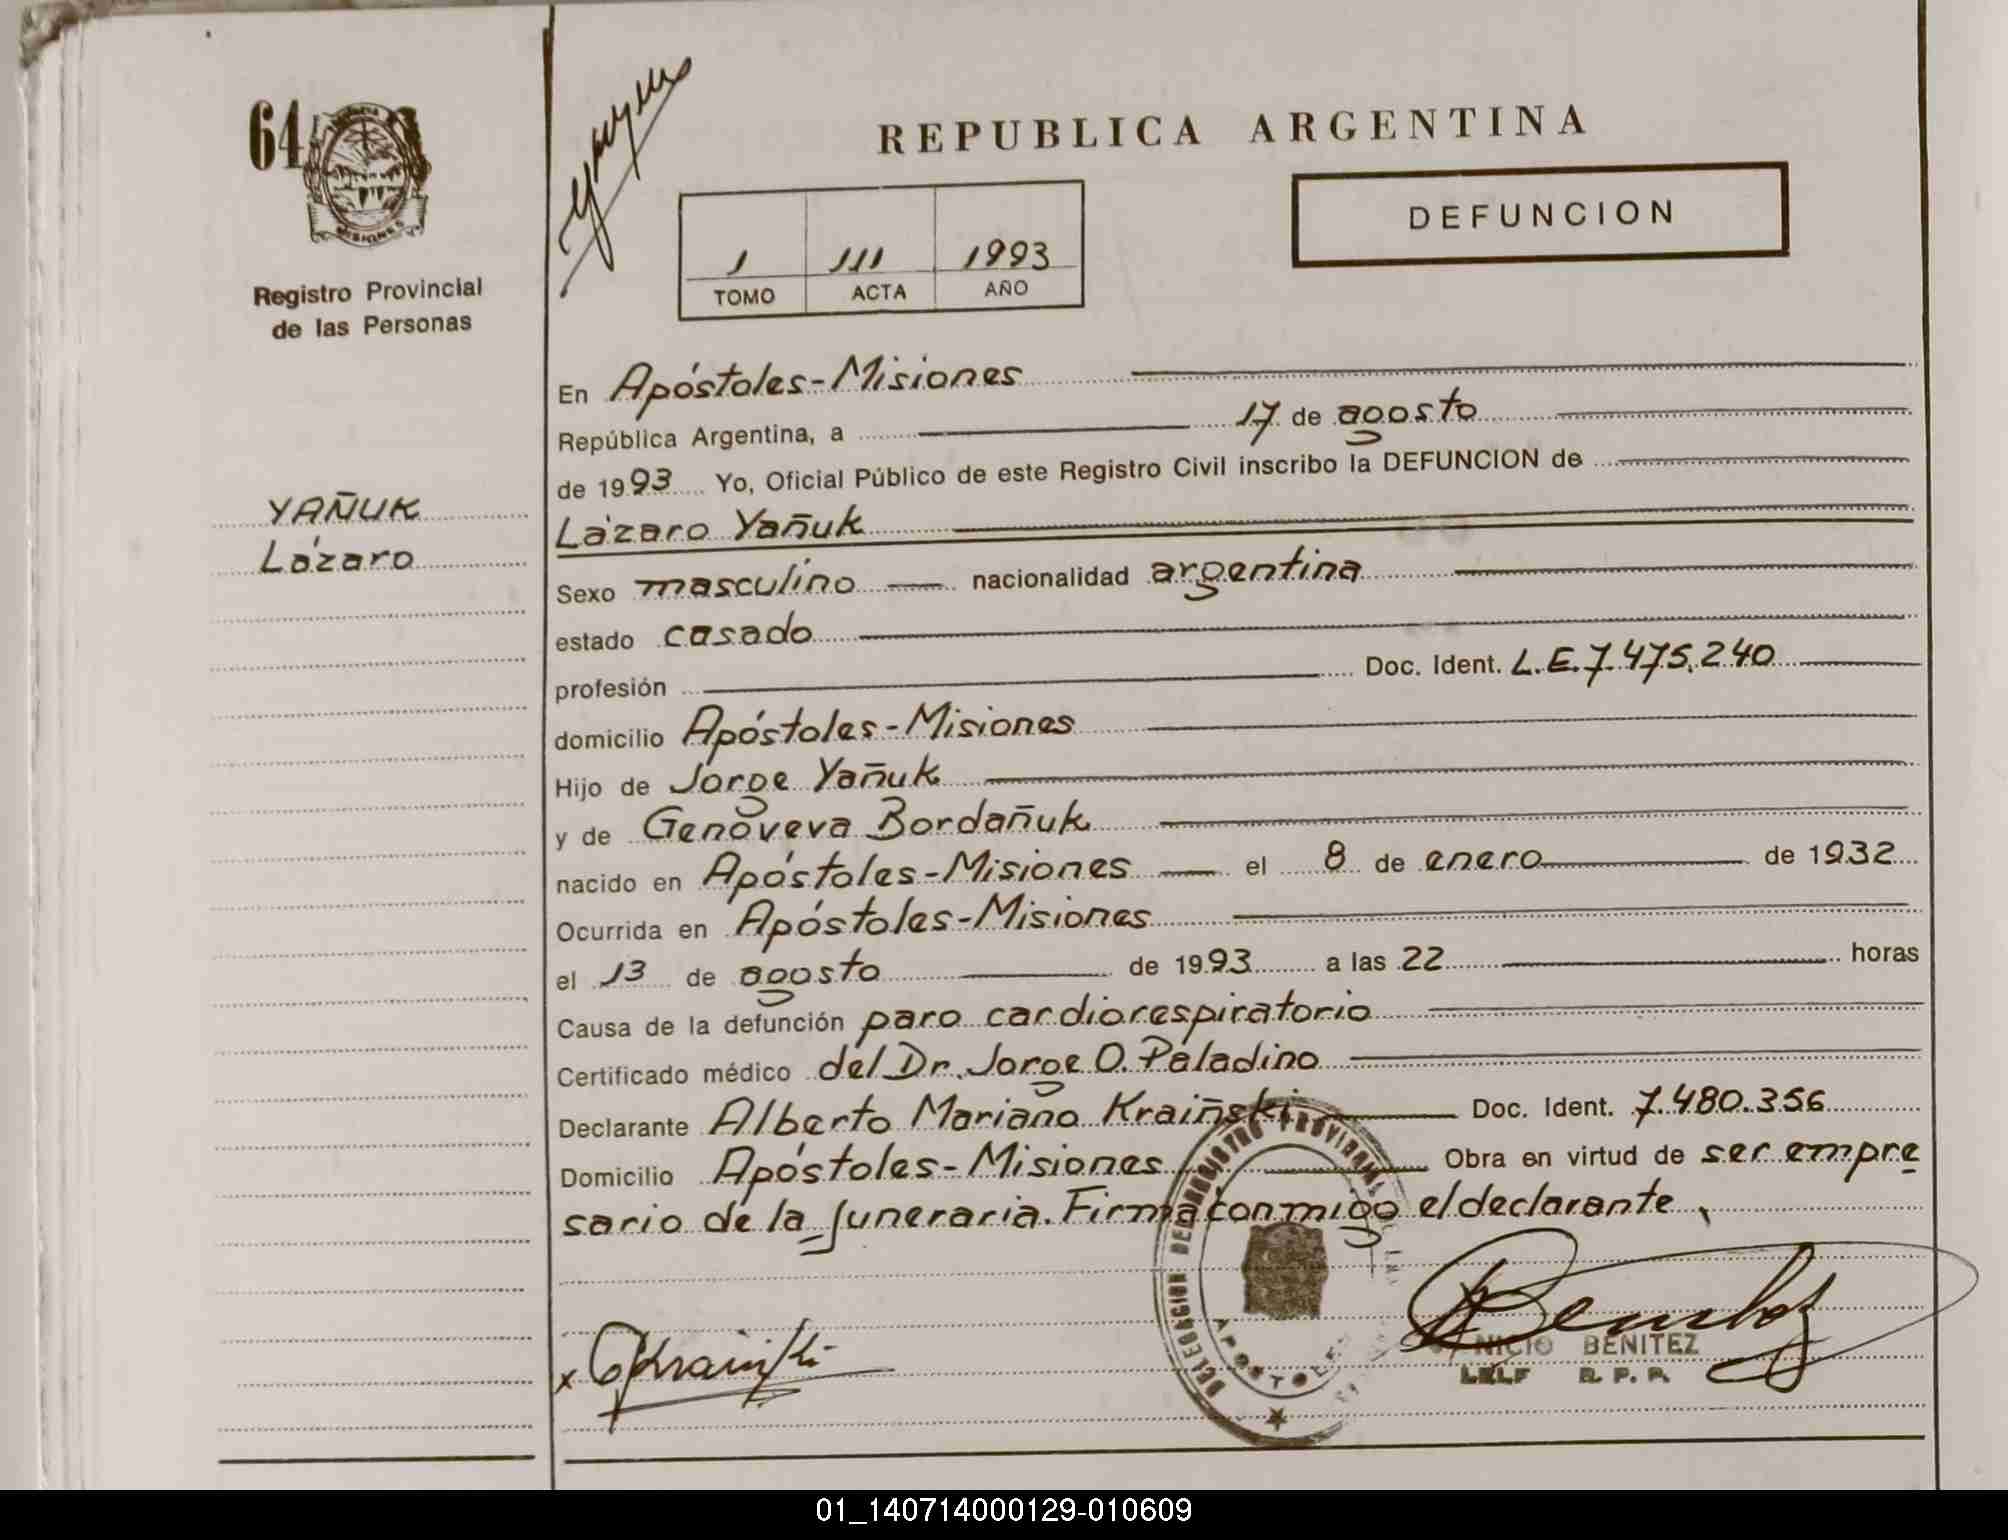 64
MISIONES
Registro Provincial
de las Personas
YAÑUK
Lázaro
REPUBLICA ARGENTINA
DEFUNCION
1 111 1993
TOMO ACTA AÑO
En Apóstoles-Misiones
República Argentina, a 17 de agosto
de 1993 Yo, Oficial Público de este Registro Civil inscribo la DEFUNCION de
Lázaro Yañuk
Sexo masculino nacionalidad argentina
estado casado
profesión Doc. Ident. L.E.7.475.240
domicilio Apóstoles-Misiones
Hijo de Jorge Yañuk
y de Genoveva Bordañuk
nacido en Apóstoles-Misiones el 8 de enero de 1932
Ocurrida en Apóstoles-Misiones
el 13 de agosto de 1993 a las 22 horas
Causa de la defunción paro cardiorespiratorio
Certificado médico del Dr. Jorge O. Paladino
Declarante Alberto Mariano Kraiñski Doc. Ident. 7.480.356
Domicilio Apóstoles-Misiones Obra en virtud de ser empre
sario de la funeraria. Firma conmigo el declarante
DELEGACION DEL REGISTRO PROVINCIAL
APOSTOLES
x Krainski
Benitez
NICIO BENITEZ
R. P. P.
01_140714000129-010609